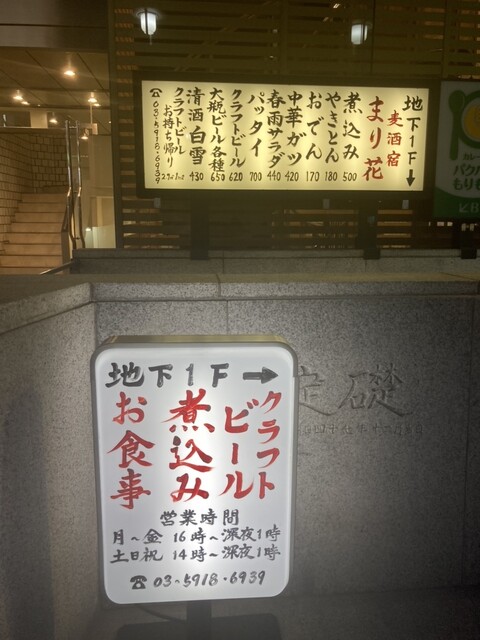 地下1F↓
麦酒宿
まり花
煮込み 500
やきとん 180
おでん 170
中華ガツ 420
春雨サラダ 440
パッタイ 700
クラフトビール 620
大瓶ビール各種 650
清酒白雪 430
クラフトビール
お持ち帰り
☎03-5918-6939
地下1F→
クラフト
ビール
煮込み
お食事
営業時間
月~金 16時~深夜1時
土日祝 14時~深夜1時
☎03-5918・6939
定礎